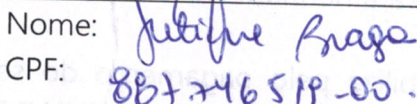 Nome: Juliane Braga
CPF: 887.746519-00